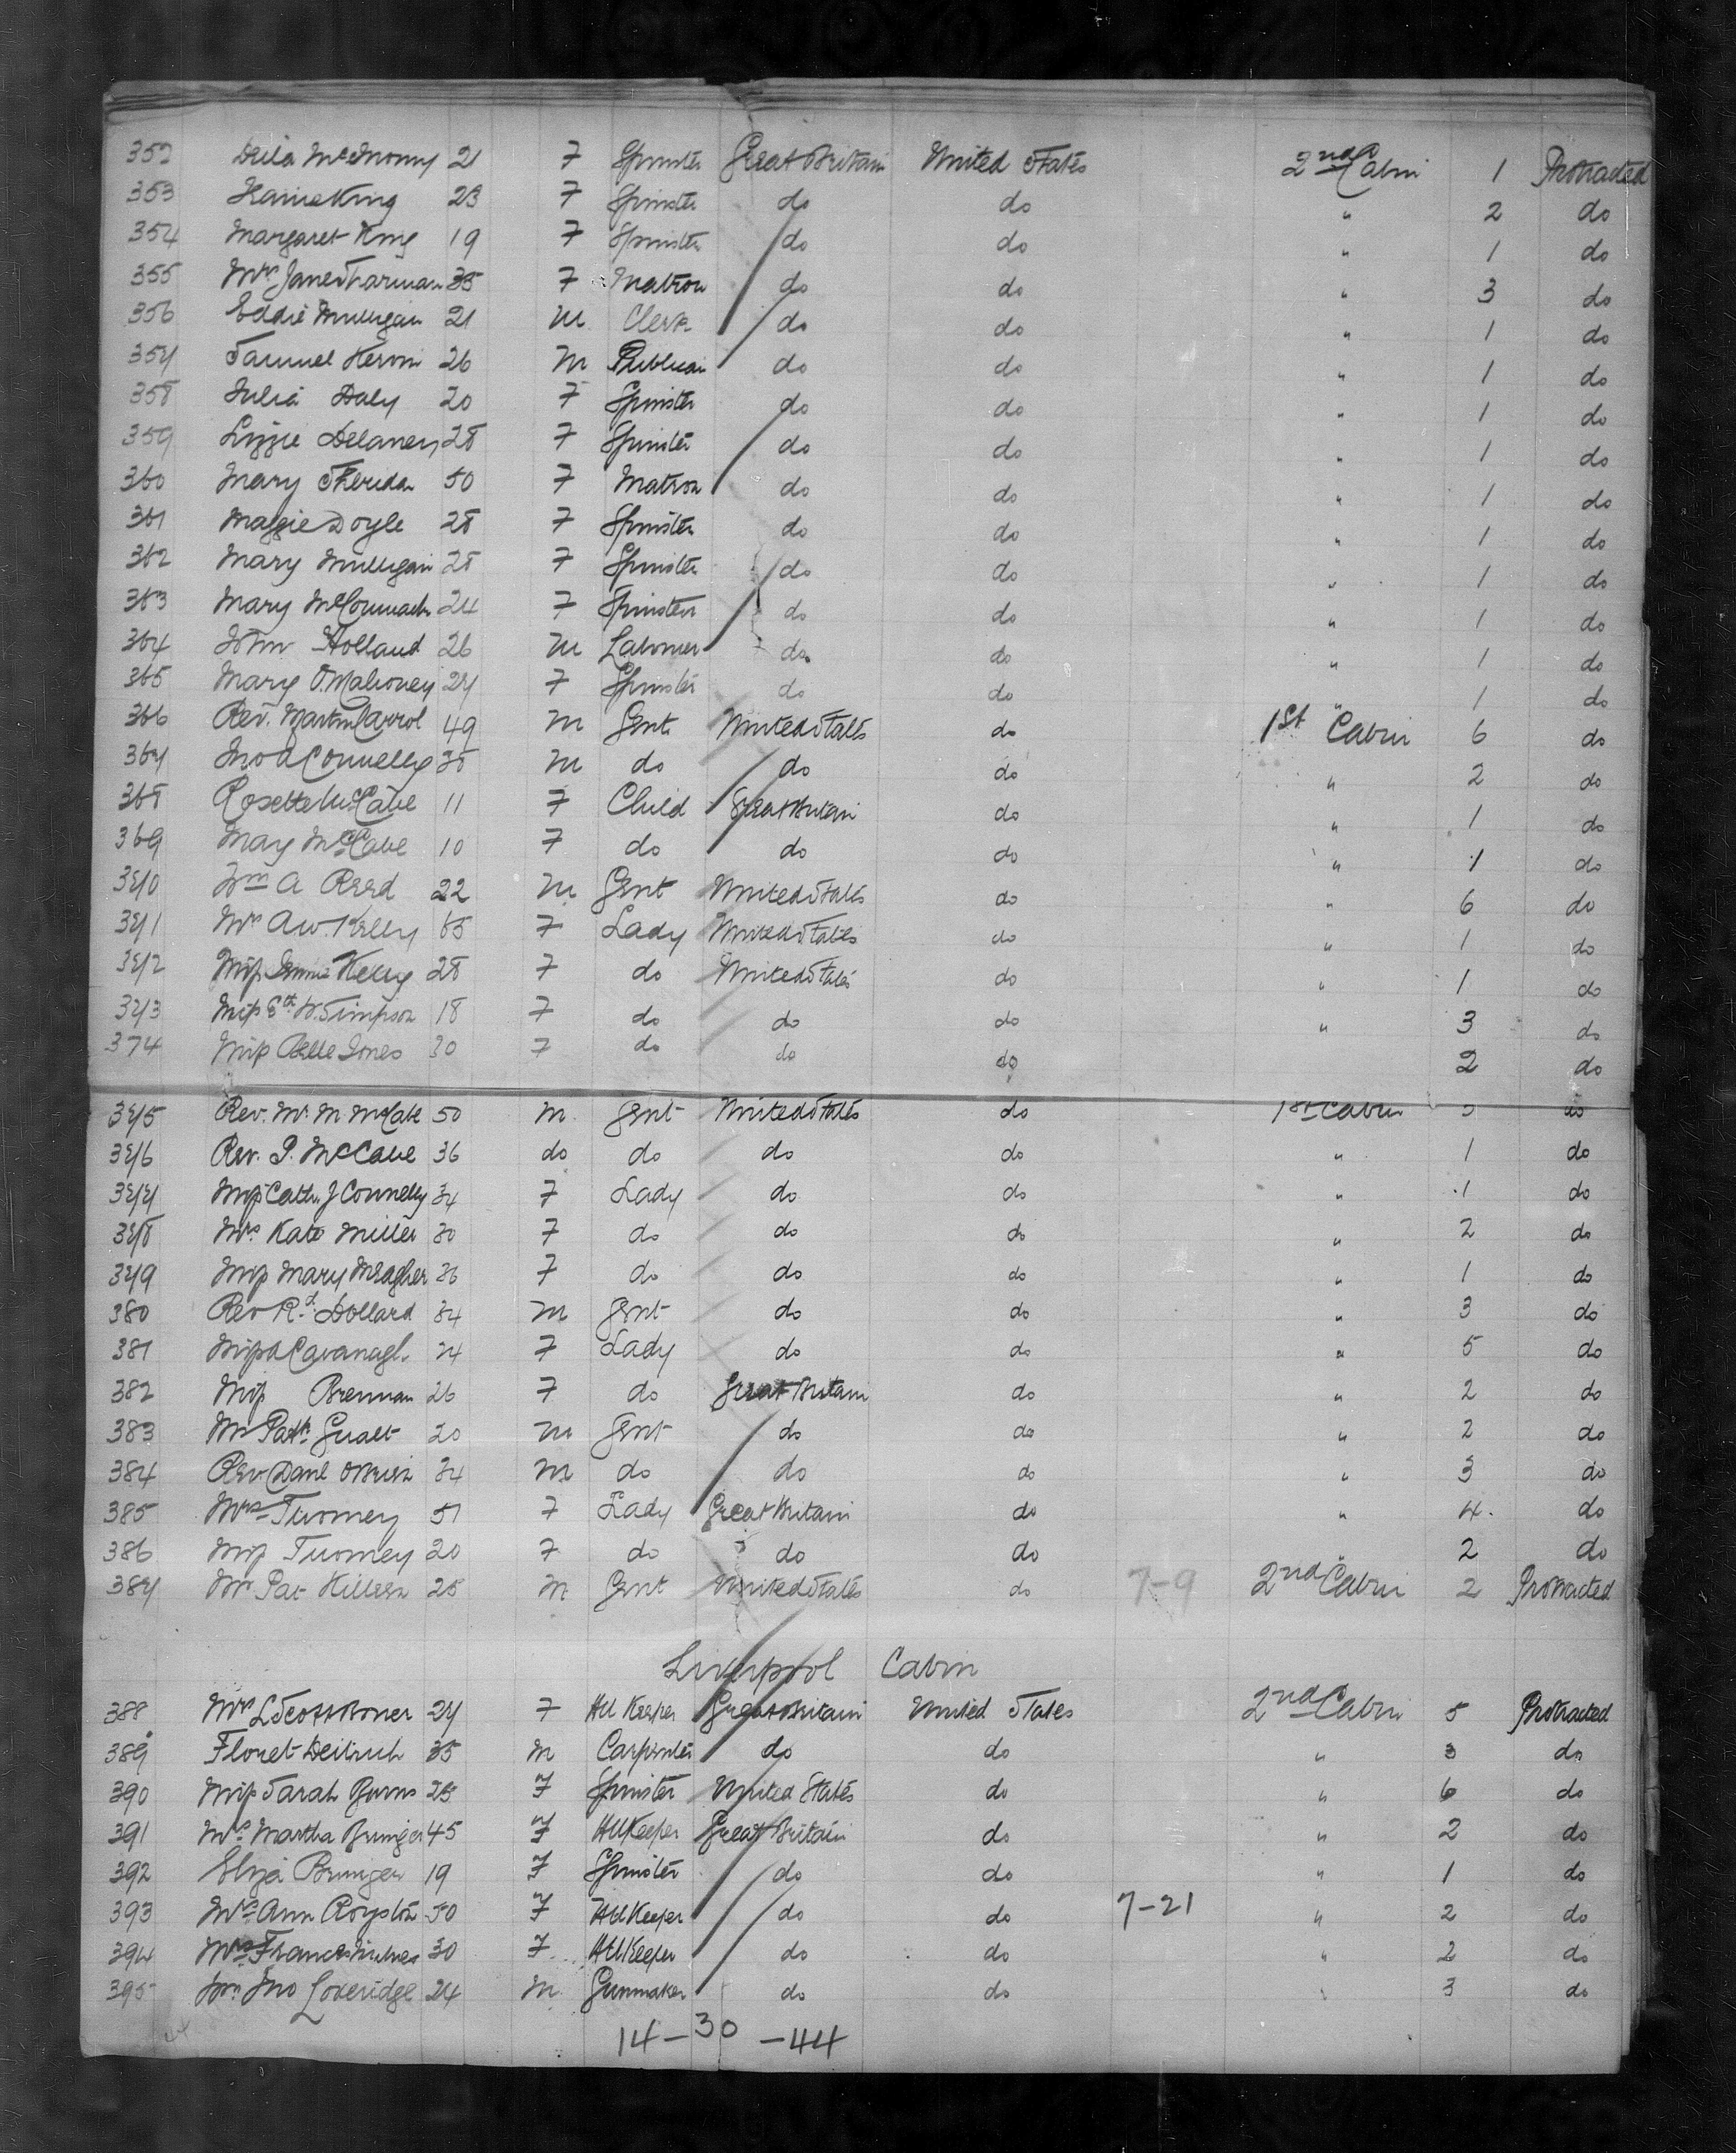 352 Delia McInorny 21 F Spinster Great Britain United States 2nd Cabin 1 Protracted
353 King 23 F Spinster do do " 2 do
354 Margaret King 19 F Spinster do do " 1 do
355 Mrs Jane Tharman 35 F Matron do do " 3 do
356 Eddie Mulligan 21 M Clerk do do " 1 do
357 Samuel Heron 26 M Publican do do " 1 do
358 Julia Daly 20 F Spinster do do " 1 do
359 Lizzie Delaney 28 F Spinster do do " 1 do
360 Mary Sheridan 50 F Matron do do " 1 do
361 Maggie Doyle 28 F Spinster do do " 1 do
362 Mary Mulligan 28 F Spinster do do " 1 do
363 Mary McCormack 24 F Spinster do do " 1 do
364 John Holland 26 M Laborer do do " 1 do
365 Mary O'Mahoney 27 F Spinster do do " 1 do
366 Rev. Martin Carrol 49 M Gent United States do 1st Cabin 6 do
367 Jno A Connelly 38 M do do do " 2 do
368 Rosette McCabe 11 F Child Great Britain do " 1 do
369 May McCabe 10 F do do do " 1 do
370 Wm A Reed 22 M Gent United States do " 6 do
371 Mrs A.W. Kelly 65 F Lady United States do " 1 do
372 Miss Kelly 28 F do United States do " 1 do
373 Miss Eth W. Simpson 18 F do do do " 3 do
374 Miss Belle Jones 30 F do do do 2 do
375 Rev. Mr. M McCabe 50 M Gent United States do 1st Cabin do
376 Rev. P. McCabe 36 do do do do " 1 do
377 Miss Cath. J Connelly 34 F Lady do do " 1 do
378 Mrs Kate Miller 30 F do do do " 2 do
379 Miss Mary Meagher 36 F do do do " 1 do
380 Rev Rd. Dollard 34 M Gent do do " 3 do
381 Miss A Cavanagh 24 F Lady do do " 5 do
382 Miss Brennan 26 F do Great Britain do " 2 do
383 Mr Patk. 20 M Gent do do " 2 do
384 Rev Danl OBrien 34 M do do do " 3 do
385 Mrs Twomey 51 F Lady Great Britain do " 4 do
386 Miss Twomey 20 F do do do " 2 do
387 Mr Pat Killeen 25 M Gent United States do 7-9 2nd Cabin 2 Protracted
Liverpool Cabin
388 Mrs L Scott Boner 27 F HdKeeper Great Britain United States 2nd Cabin 5 Protracted
389 Floret Deitrich 35 M Carpenter do do " 3 do
390 Miss Sarah Burns 25 F Spinster United States do " 6 do
391 Mrs Martha Bruniger 45 F HdKeeper Great Britain do " 2 do
392 Eliza Bruniger 19 F Spinster do do " 1 do
393 Mrs Ann Royston 50 F HdKeeper do do 7-21 " 2 do
394 Mrs Frances 30 F HdKeeper do do " 2 do
395 Mr Jno Loveridge 24 M Gunmaker do do " 3 do
14-30-44